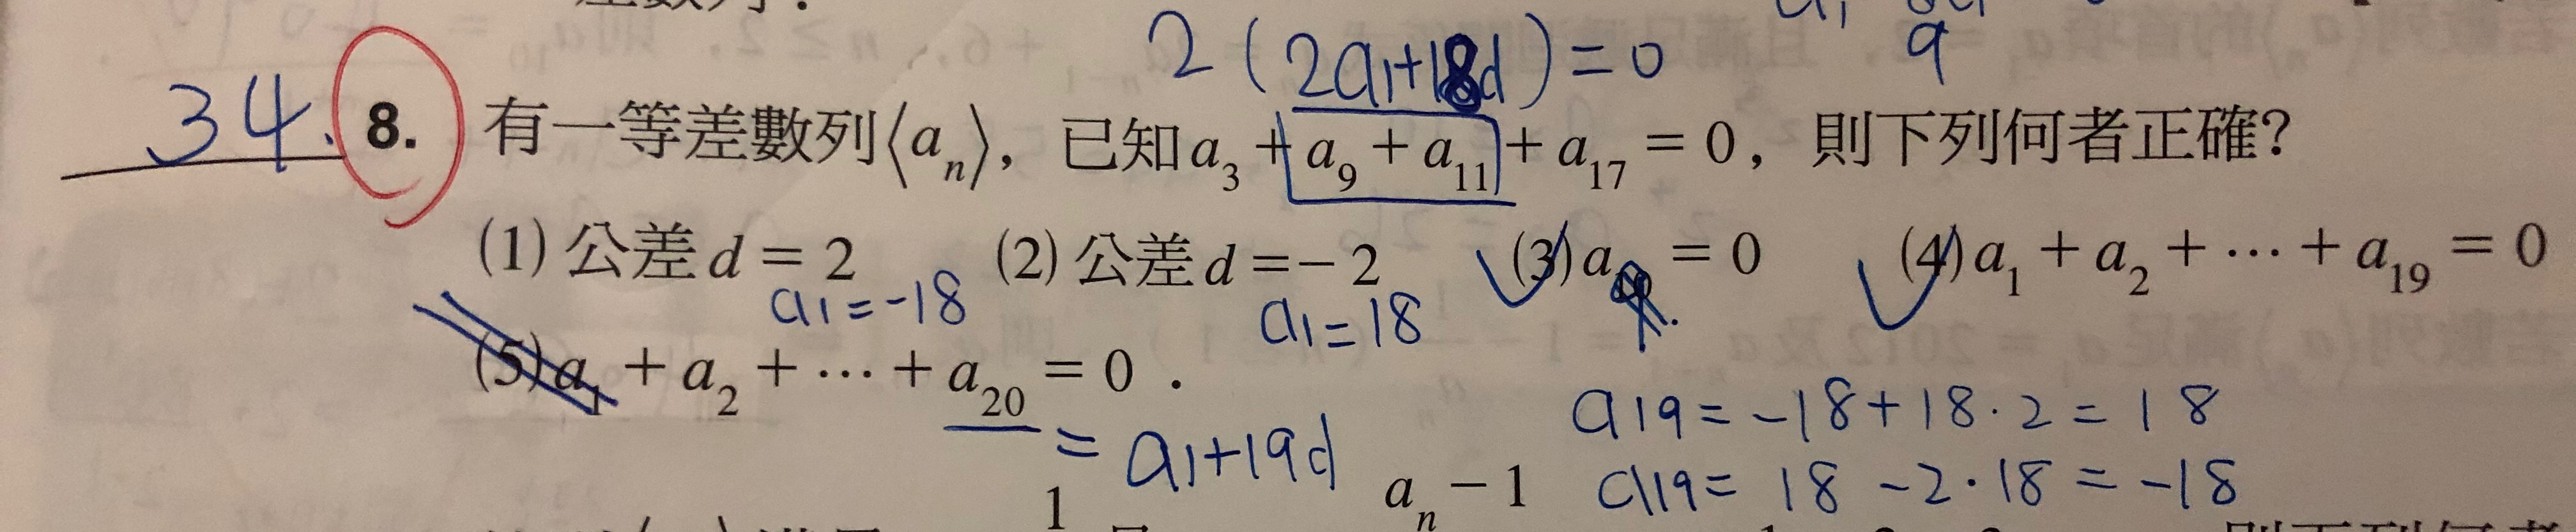 2(2a1+18d)=0
9
34.
8. 有一等差數列⟨aₙ⟩，已知 a₃ + a₉ + a₁₁ + a₁₇ = 0，則下列何者正確?
(1) 公差 d = 2 (2) 公差 d = − 2 (3) a₁₀ = 0 (4) a₁ + a₂ + ⋯ + a₁₉ = 0
a1=-18 a1=18
(5) a₁ + a₂ + ⋯ + a₂₀ = 0 .
a19=-18+18·2=18
= a1+19d
aₙ − 1 a19= 18 -2·18=-18
1